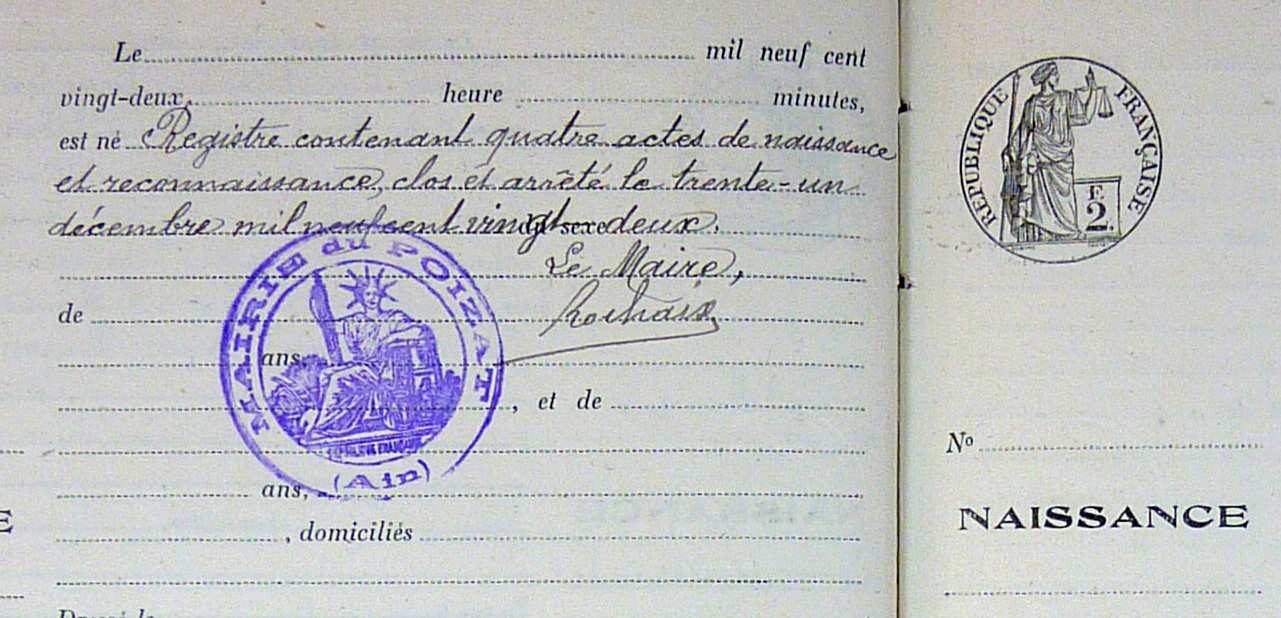 Le mil neuf cent
vingt-deux, heure minutes,
est né Registre contenant quatre actes de naissance
et reconnaissance, clos et arrêté le trente-un
décembre mil neuf cent vingt sexe deux.
Le Maire,
de Rochaix
ans,
, et de
ans,
, domiciliés
MAIRIE du POIZAT
RÉPUBLIQUE FRANÇAISE
(Ain)
RÉPUBLIQUE FRANÇAISE
F.
2.
Nº
NAISSANCE